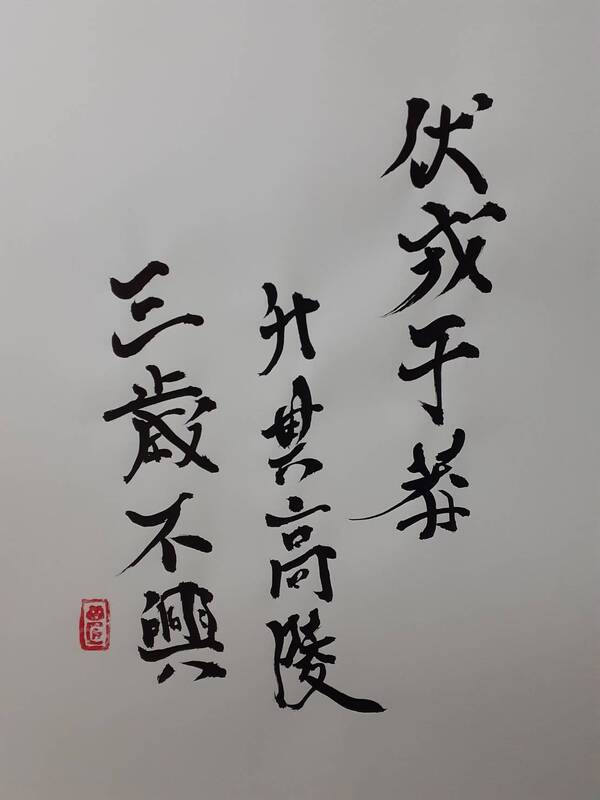 伏戎于莽
升其高陵
三歲不興